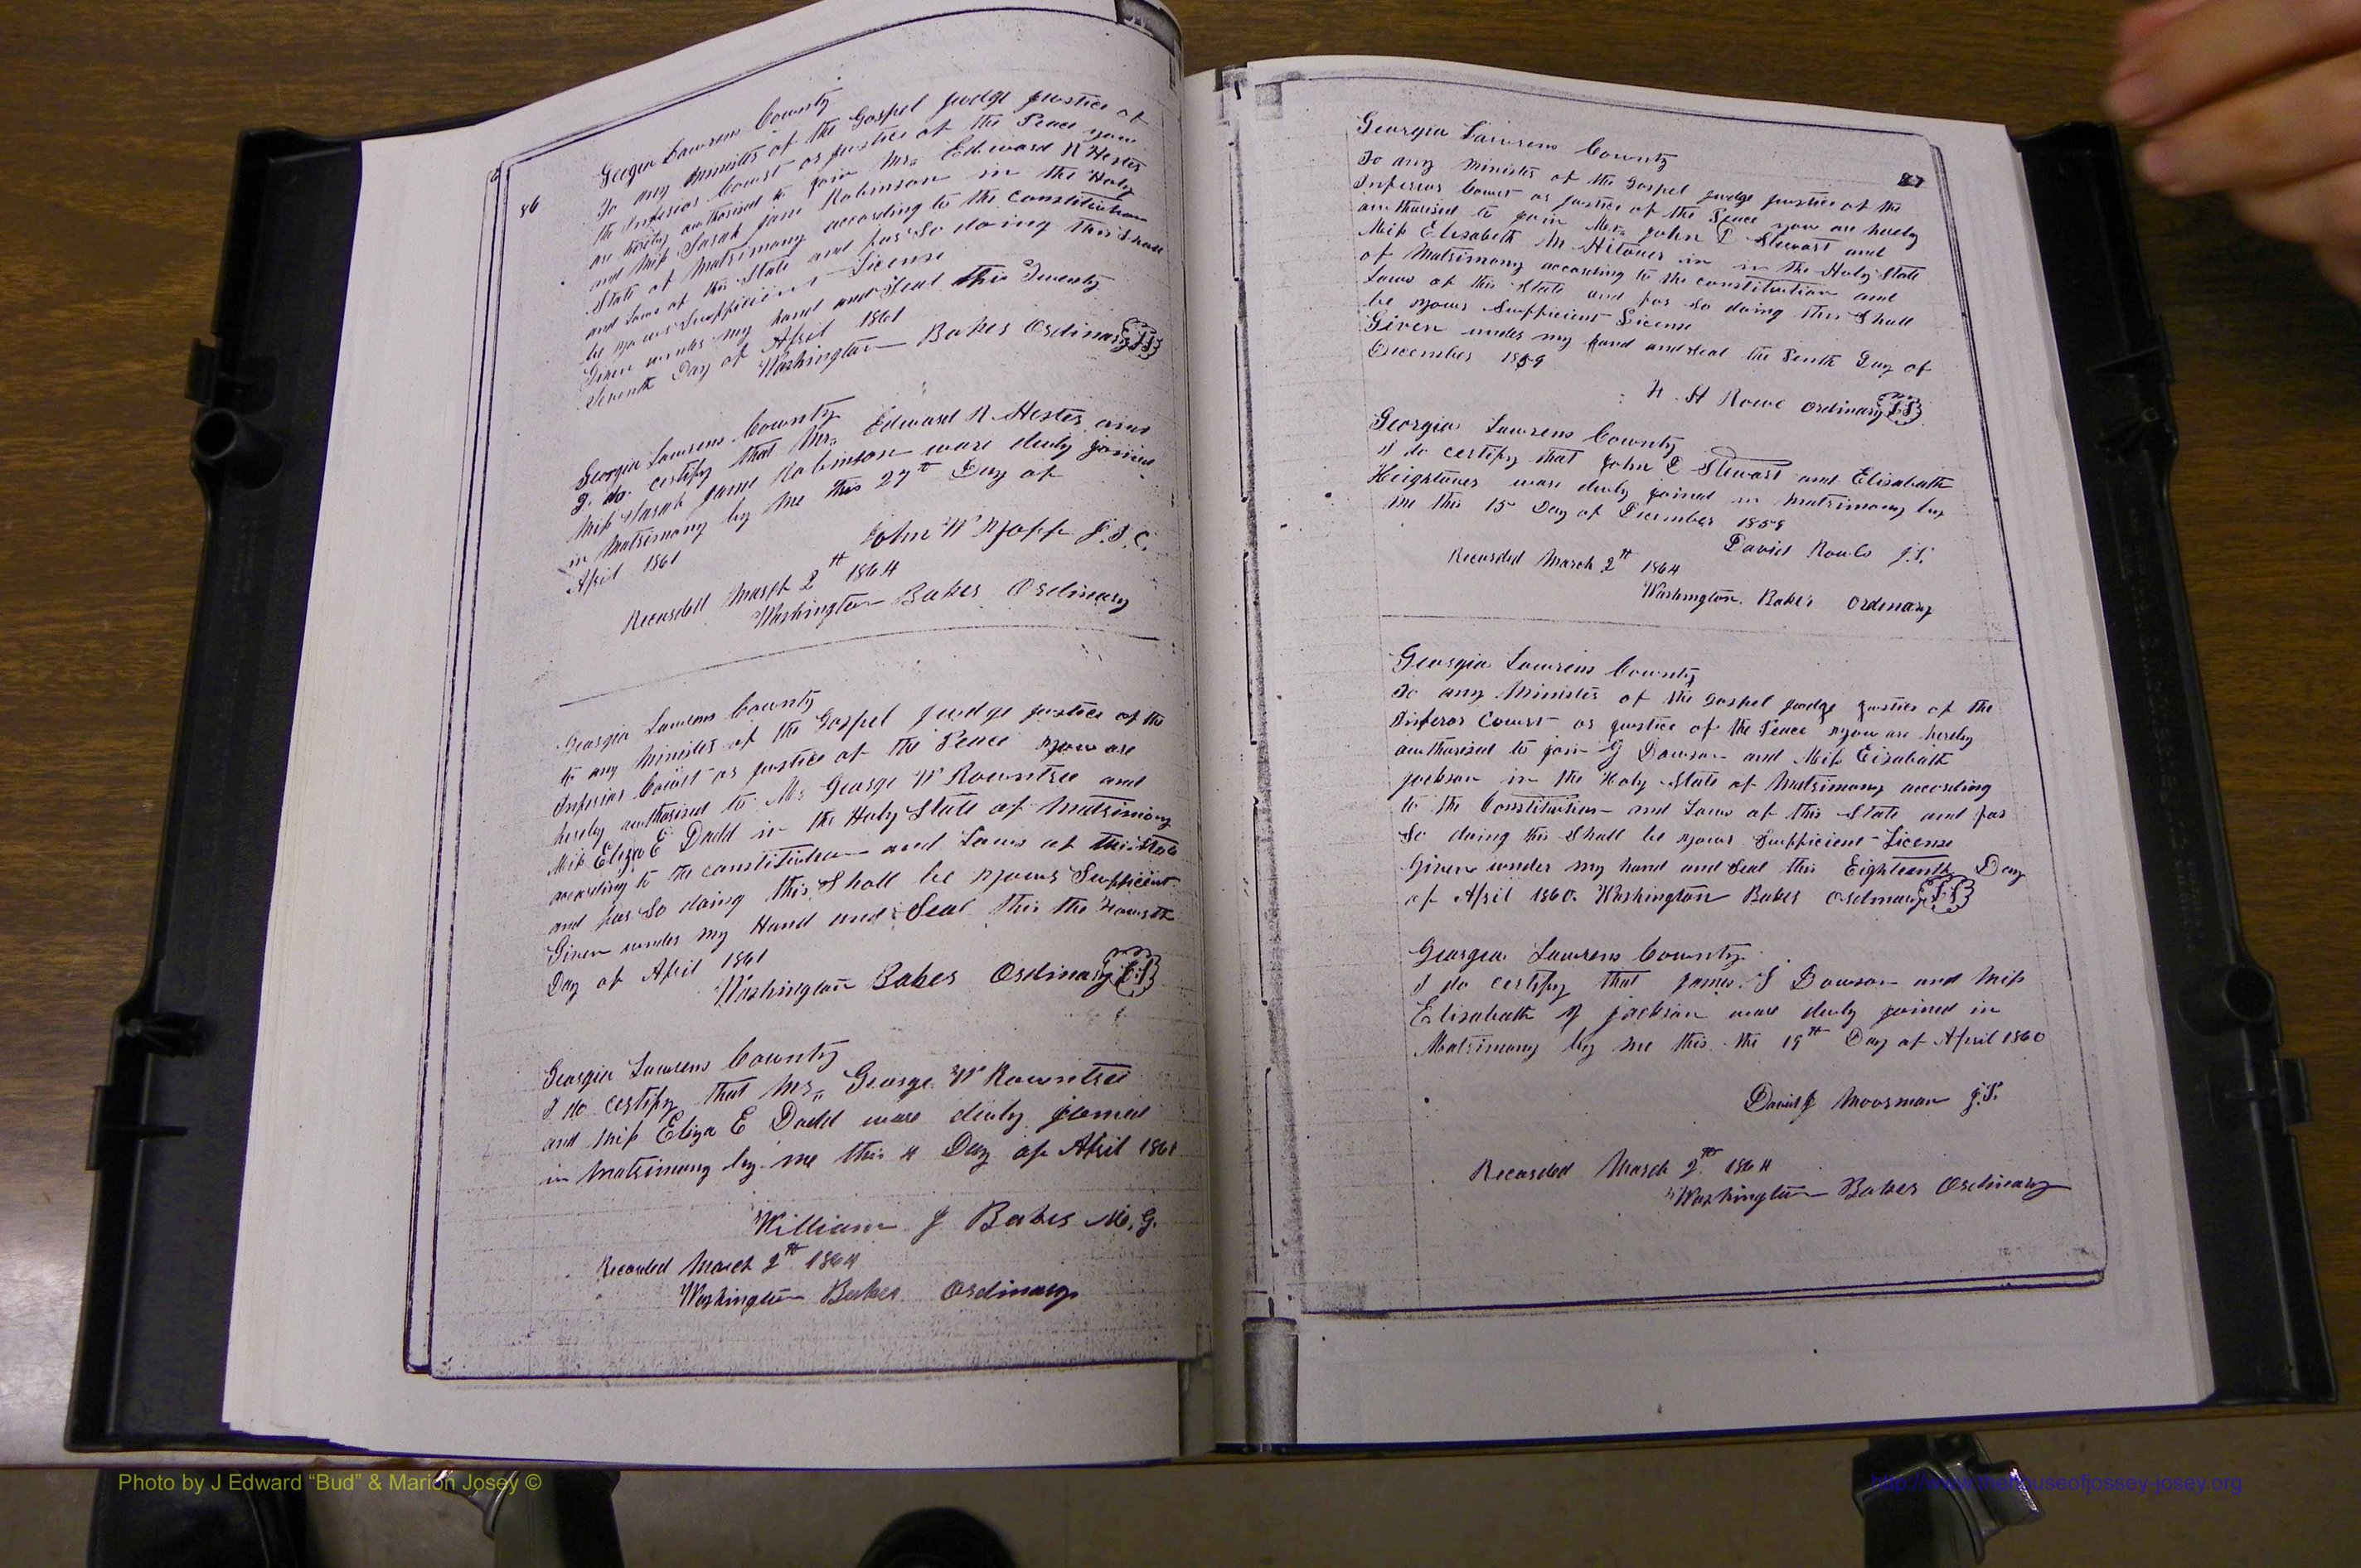 86
Georgia Lawrens County
To any Minister of the Gospel judge justice of
the Inferior Court or justice of the Peace you
are hereby authorised to join Mr. Edward R Hester
and Miss Sarah jane Robinson in the Holy
State of Matrimony according to the Constitution
and Laws of this State and for So doing this Shall
be yours Sufficient License
Given under my hand and Seal this Twenty
Seventh Day of April 1861
Washington Baker Ordinary L.S
Georgia Lawrens County
I do certify that Mr. Edward R Hester and
Miss Sarah jane Robinson ware duly joined
in Matrimony by Me this 27th Day of
April 1861
John W Yopp J.I.C.
Recorded March 2th 1864
Washington Baker Ordinary
Georgia Lawrens County
to any Minister of the Gospel judge justice of the
Inferior Court or justice of the Peace you are
hereby authorised to Mr George W Rowntree and
Miss Eliza E Dodd in the Holy State of Matrimony
according to the constitution and Laws of this State
and for So doing this Shall be yours Sufficient
Given under my Hand and Seal this the Fourth
Day of April 1861
Washington Baker Ordinary L.S
Georgia Lawrens County
I do certify that Mr. George W Rowntree
and Miss Eliza E Dodd ware duly joined
in Matrimony by me this 4 Day of April 1861
William J Baker M.G.
Recorded March 2th 1864
Washington Baker Ordinary
87
Georgia Lawrens County
To any Minister of the Gospel judge justice of the
Inferior Court or justice of the Peace you are hereby
authorised to join Mr. John D Stewart and
Miss Elisabeth M Hitower in in the Holy State
of Matrimony according to the constitution and
Laws of this State and for So doing this Shall
be yours Sufficient License
Given under my hand and seal the Tenth Day of
December 1859
H. H Rowe Ordinary L.S
Georgia Lawrens County
I do certify that John D Stewart and Elisabeth
Heightower ware duly joined in matrimony by
me this 15 Day of December 1859
David J.P.
Recorded March 2th 1864
Washington Baker Ordinary
Georgia Lawrens County
To any Minister of the Gospel judge justice of the
Inferor Court or justice of the Peace you are hereby
authorised to join J Dawson and Miss Elisabeth
jackson in the Holy State of Matrimony according
to the Constitution and Laws of this State and for
So doing this Shall be yours Sufficient License
Given under my hand and Seal this Eighteenth Day
of April 1860. Washington Baker Ordinary L.S
Georgia Lawrens County
I do certify that James J Dawson and Miss
Elisabeth jackson ware duly joined in
Matrimony by me this the 19th Day of April 1860
David J Moorman J.P.
Recorded March 2th 1864
Washington Baker Ordinary
Photo by J Edward “Bud” & Marion Josey ©
http://www.thehouseofjossey-josey.org